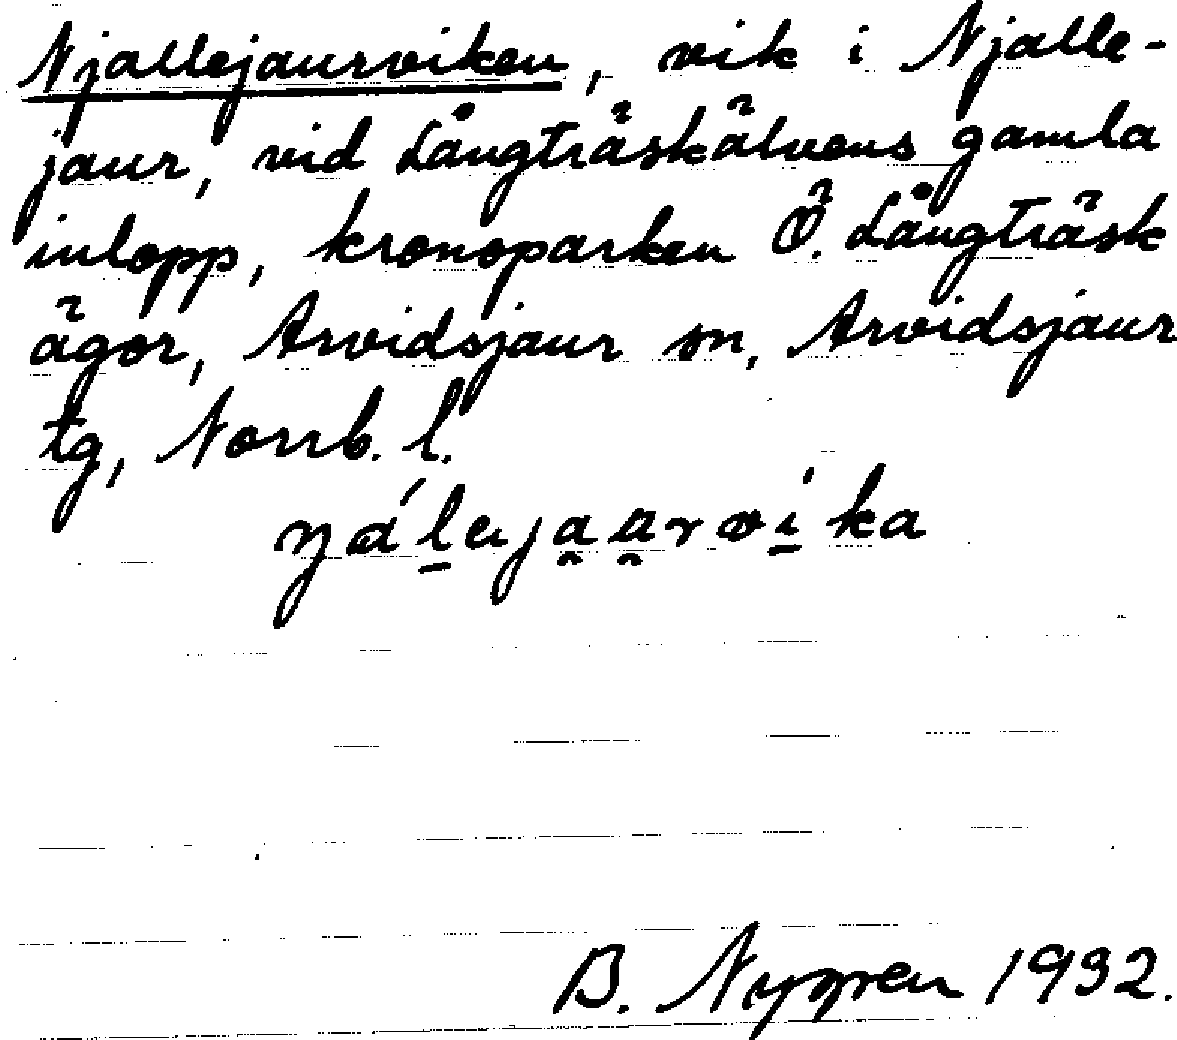 Njallejaurviken, vik i Njalle-
jaur, vid Långträskälvens gamla
inlopp, kronoparken Ö. Långträsk
ägor, Arvidsjaur sn, Arvidsjaur
tg, Norrb. l.
B. Nygren 1932.